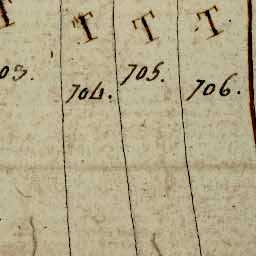 T T T T
03. 704. 705. 706.